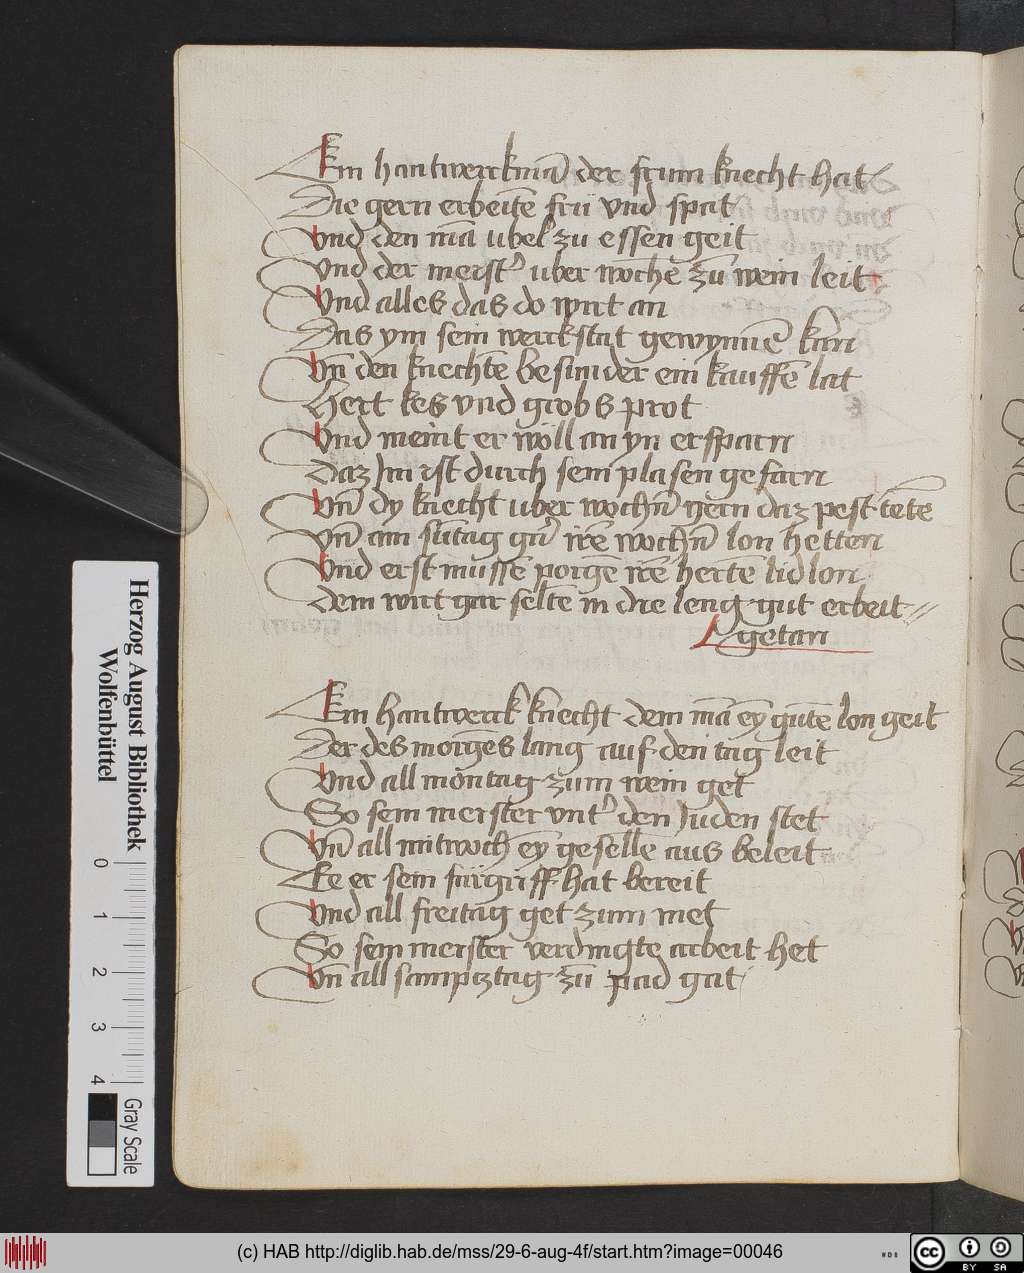 Ein hantwerckmā der frum knecht hat
Die gern erbeitē frü vnd spat
Vnd den mā ubel zu essen geit
Vnd der meist' uber woche zū wein leit
Vnd alles das do wirt an
Das ym sein werckstat gewynnē kan
Vn̄ den knechtē besunder ein kauffē lat
Hert kes vnd grobs prot
Vnd meint er wöll an yn ersparn
Daz Im ist durch sein plasen gefarn
Vn̄ dy knecht uber wochn̄ gern daz pest tētē
Vn̄ am sūtag gn̄ irē wochn̄ lon hetten
Vnd erst mussē porgē irē hertē lidlon
Dem wirt gar seltē in die leng gut erbeit
getan
Ein hantwerck knecht dem mā ey gutē lon geit
Der des morgēs lang auf den tag leit
Vnd all montag zum wein get
So sein meister vnt' den Juden stet
Vn̄ all mitwoch ey gesellē aus beleit
Ee er sein fürgriff hat bereit
Vnd all freitag get zum met
So sein meister verdingte arbeit het
Vn̄ all sampcztag zū pad gat
Herzog August Bibliothek
Wolfenbüttel
0
1
2
3
4
Gray Scale
(c) HAB http://diglib.hab.de/mss/29-6-aug-4f/start.htm?image=00046
WDB
cc
BY SA